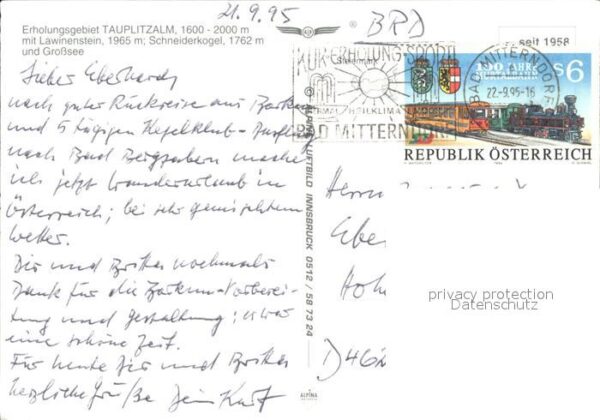 21.9.95
BRD
Erholungsgebiet TAUPLITZALM, 1600 - 2000 m
mit Lawinenstein, 1965 m; Schneiderkogel, 1762 m
und Großsee
Lieber Eberhard,
nach guter Rückreise aus Borkum
und 5 tägigen Kegelklub-Ausflug
nach Bad Bergzabern mache
ich jetzt Wanderurlaub in
Österreich; bei sehr gemischtem
Wetter.
Dir und nochmals
Dank für die Borkum-Vorberei-
tung und Gestaltung; es war
eine schöne Zeit.
Für heute Dir und
herzliche Grüße Dein Kurt
ALPINE LUFTBILD INNSBRUCK 0512 / 58 73 24
ALPINA
KUR·ERHOLUNG·SPORT
BAD MITTERNDORF
BAD MITTERNDORF
22.-9.95-16
seit 1958
100 JAHRE
MURTALBAHN
S6
REPUBLIK ÖSTERREICH
Herrn
Eber
Hoh
D462
privacy protection
Datenschutz